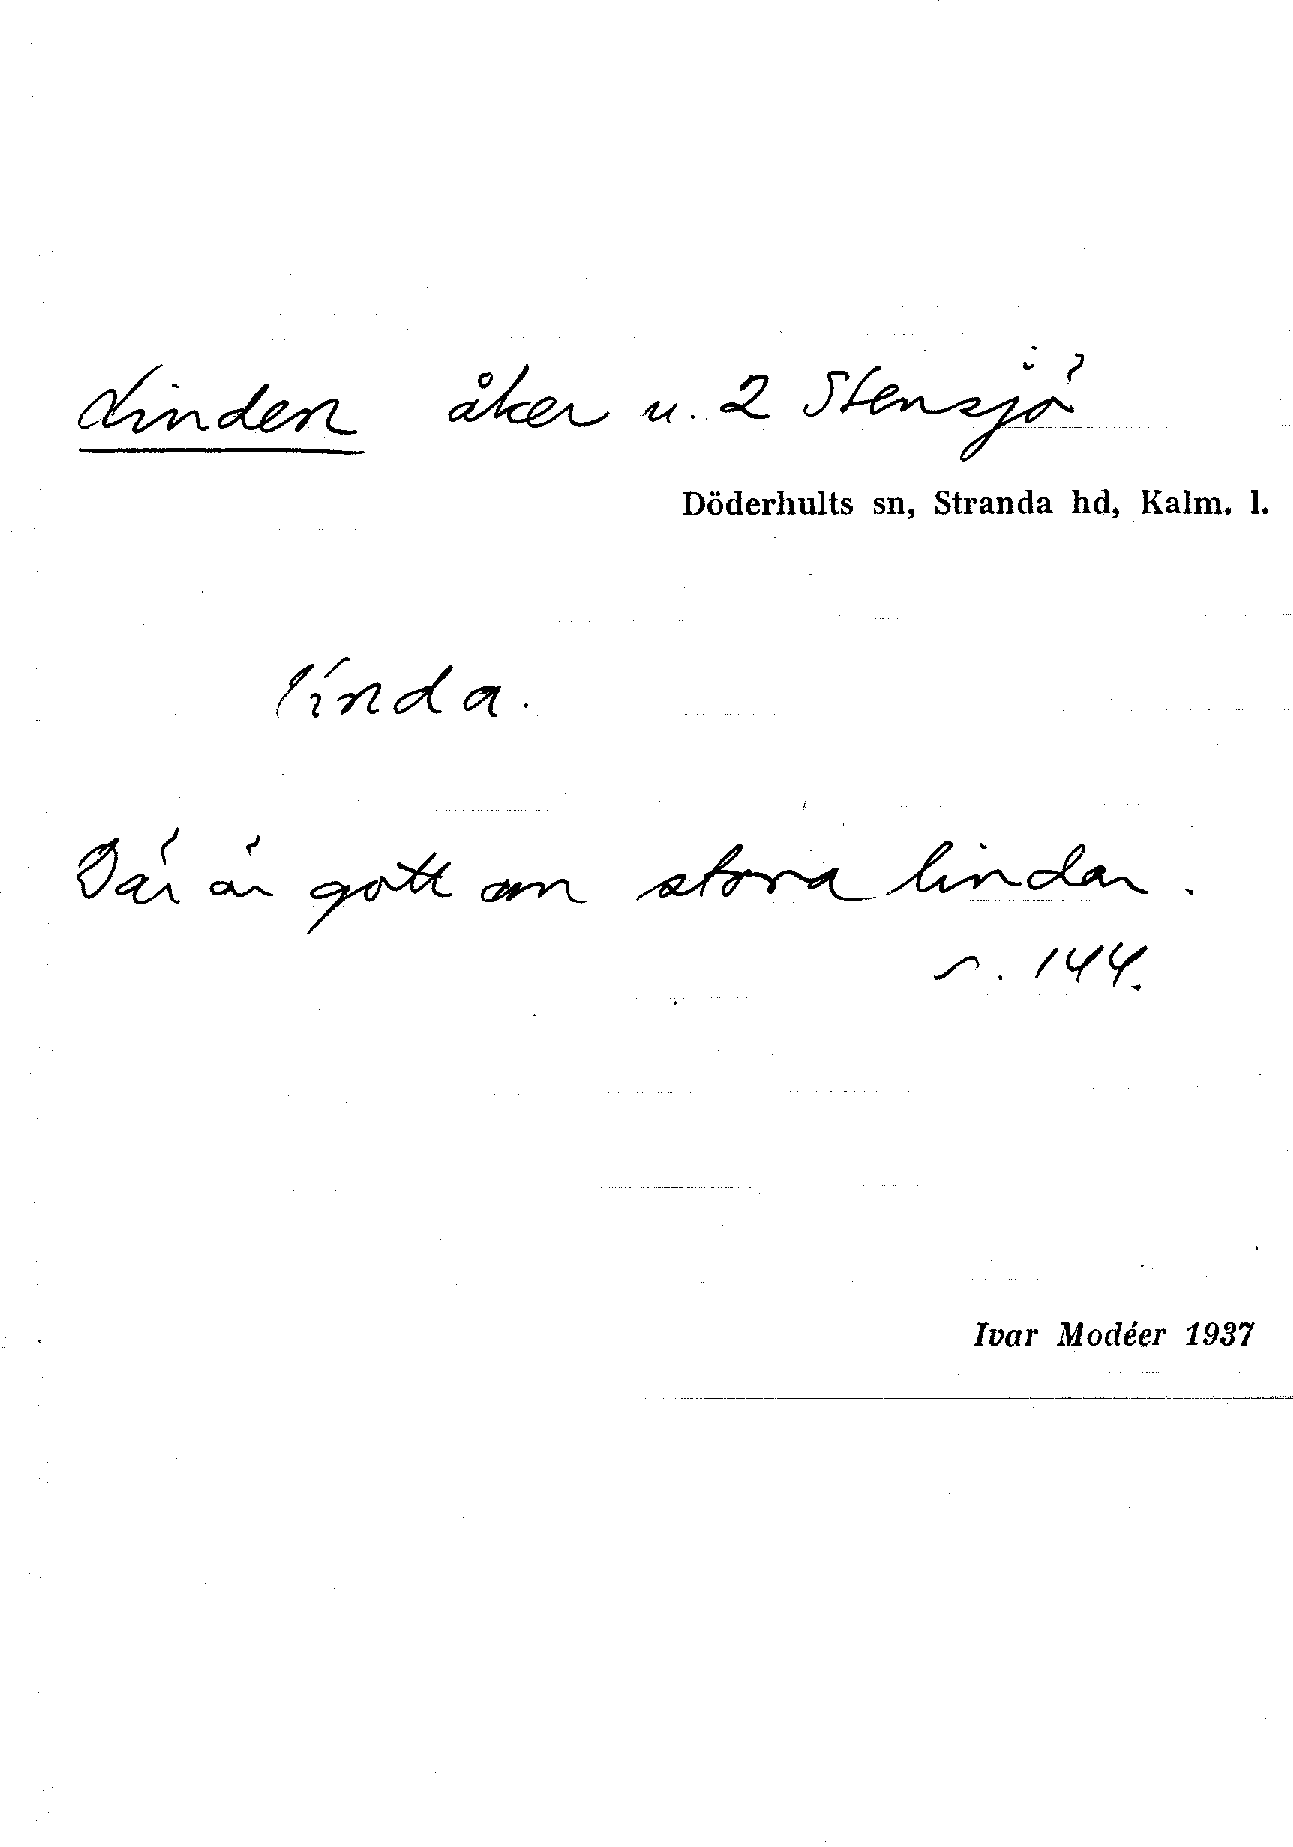 Linden åker u. 2 Stensjö
Döderhults sn, Stranda hd, Kalm. l.
lında.
Där är gott om stora lindar.
s. 144.
Ivar Modéer 1937